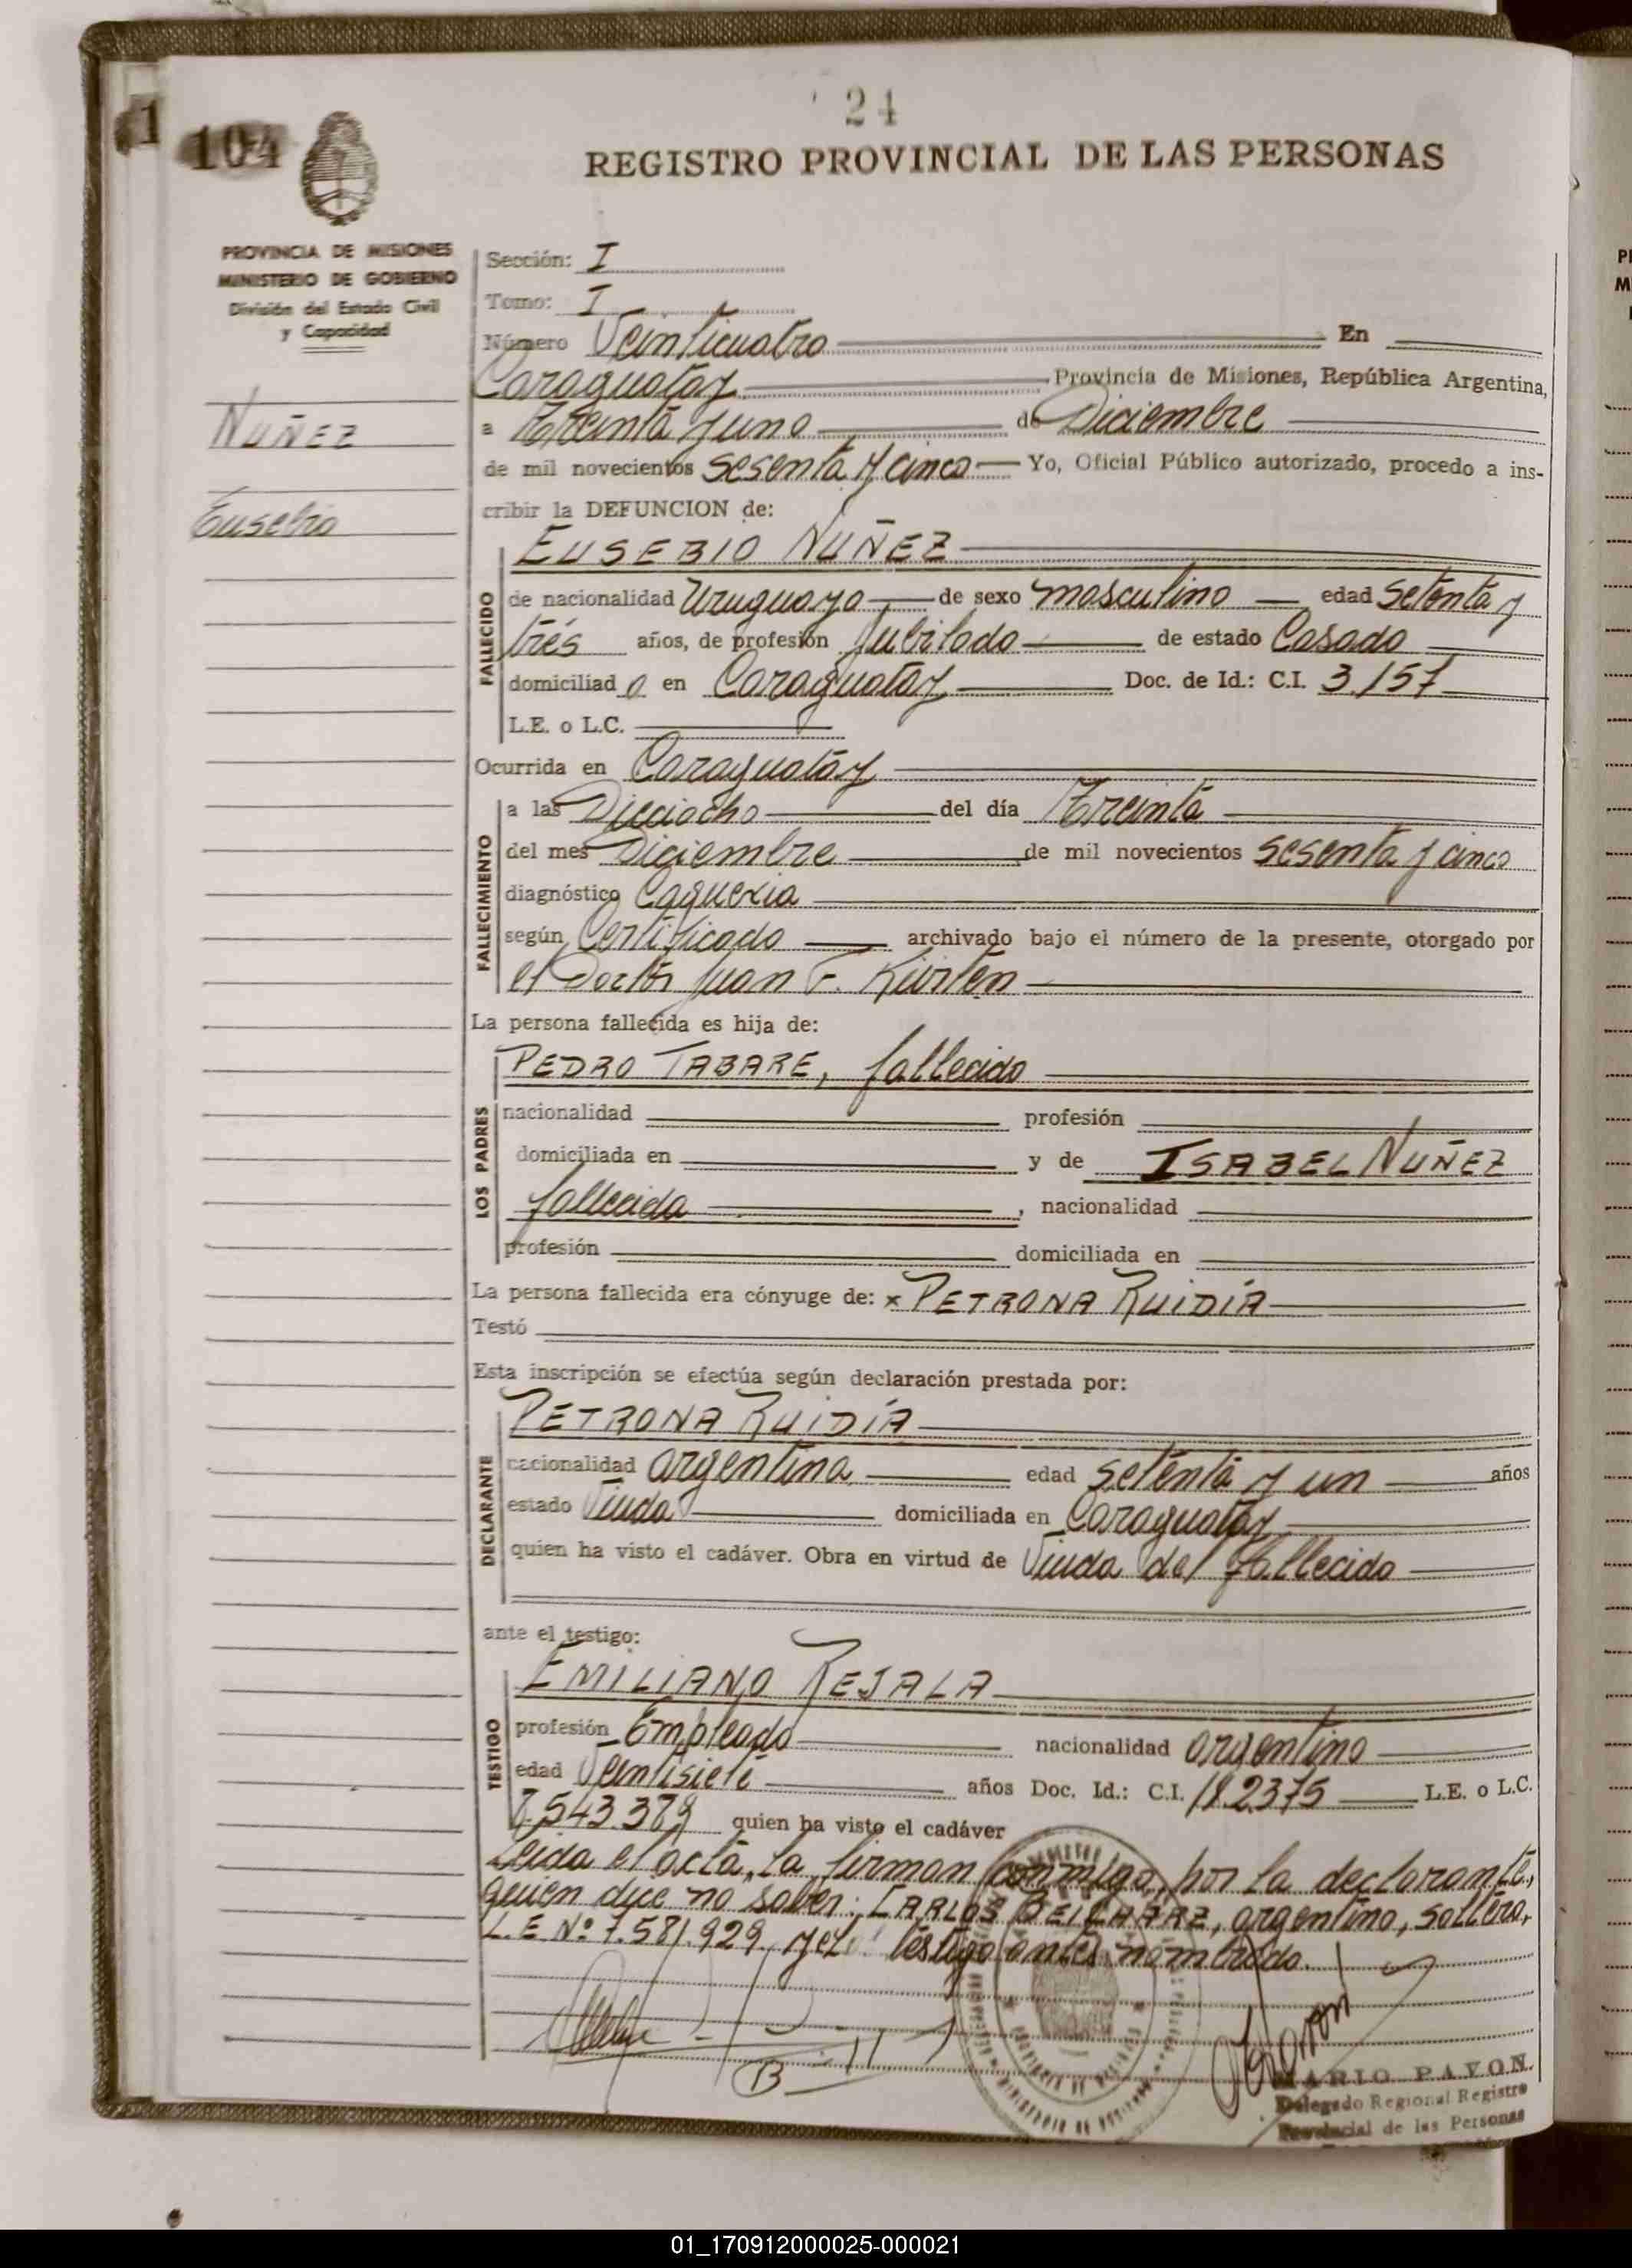 24
1
104
REGISTRO PROVINCIAL DE LAS PERSONAS
PROVINCIA DE MISIONES
MINISTERIO DE GOBIERNO
División del Estado Civil
y Capacidad
NUÑEZ
Eusebio
Sección: I
Tomo: I
Número Veinticuatro En
Caraguatay Provincia de Misiones, República Argentina,
a Treinta y uno de Diciembre
de mil novecientos sesenta y cinco Yo, Oficial Público autorizado, procedo a ins-
cribir la DEFUNCION de:
EUSEBIO NUÑEZ
FALLECIDO
de nacionalidad Uruguaya de sexo masculino edad setenta y
trés años, de profesión Jubilado de estado Casado
domiciliad o en Caraguatay Doc. de Id.: C.I. 3.157
L.E. o L.C.
Ocurrida en Caraguatay
FALLECIMIENTO
a las Dieciocho del día Treinta
del mes Diciembre de mil novecientos sesenta y cinco
diagnóstico Caquexia
según Certificado archivado bajo el número de la presente, otorgado por
el Doctor Juan F. Kürten
La persona fallecida es hija de:
PEDRO TABARE, fallecido
LOS PADRES
nacionalidad profesión
domiciliada en y de ISABEL NUÑEZ
fallecida , nacionalidad
profesión domiciliada en
La persona fallecida era cónyuge de: x PETRONA RUIDÍA
Testó
Esta inscripción se efectúa según declaración prestada por:
PETRONA RUIDÍA
DECLARANTE
nacionalidad argentina edad setenta y un años
estado Viuda domiciliada en Caraguatay
quien ha visto el cadáver. Obra en virtud de Viuda del fallecido
ante el testigo:
EMILIANO REJALA
TESTIGO
profesión Empleado nacionalidad argentino
edad Veintisiete años Doc. Id.: C.I. 182375 L.E. o L.C.
7.543.379 quien ha visto el cadáver
Leida el acta, la firman conmigo, por la declarante,
quien dice no saber: CARLOS BEICHARZ, argentino, soltero,
L.E Nº 7.581.929, y el testigo antes nombrado.
MARIO PAVON
Delegado Regional Registro
Provincial de las Personas
01_170912000025-000021